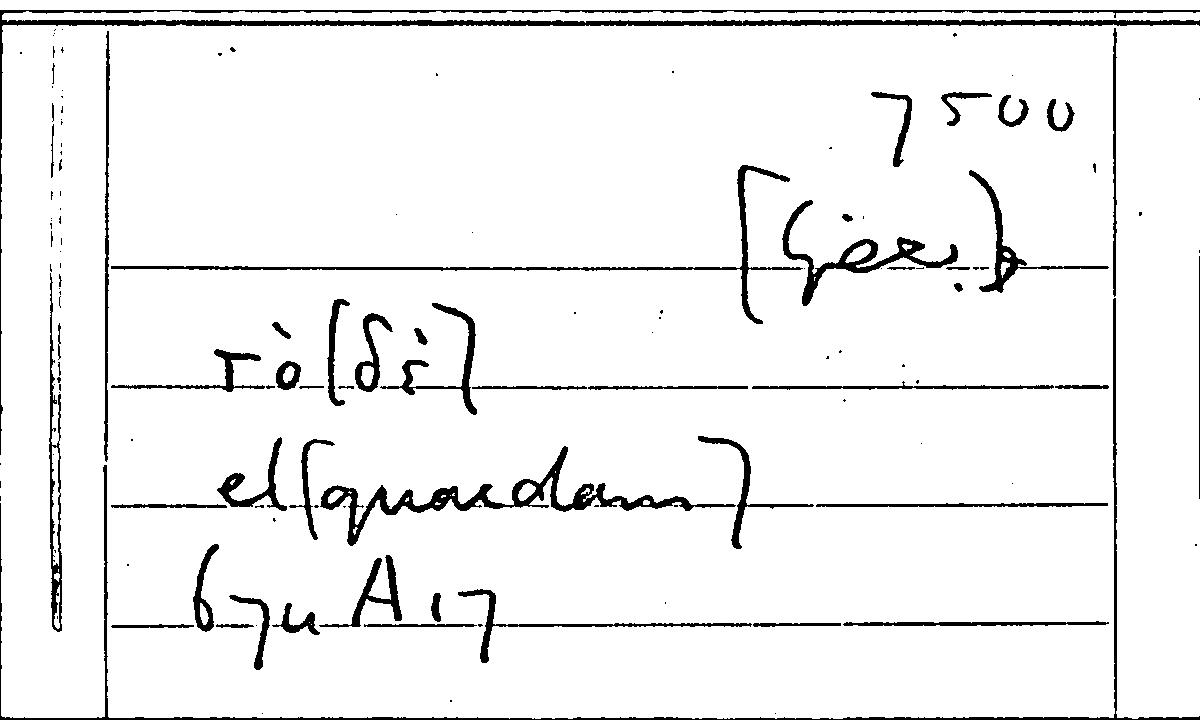 7500
τὸ [δὲ]
el [quaedam]
67u A 17